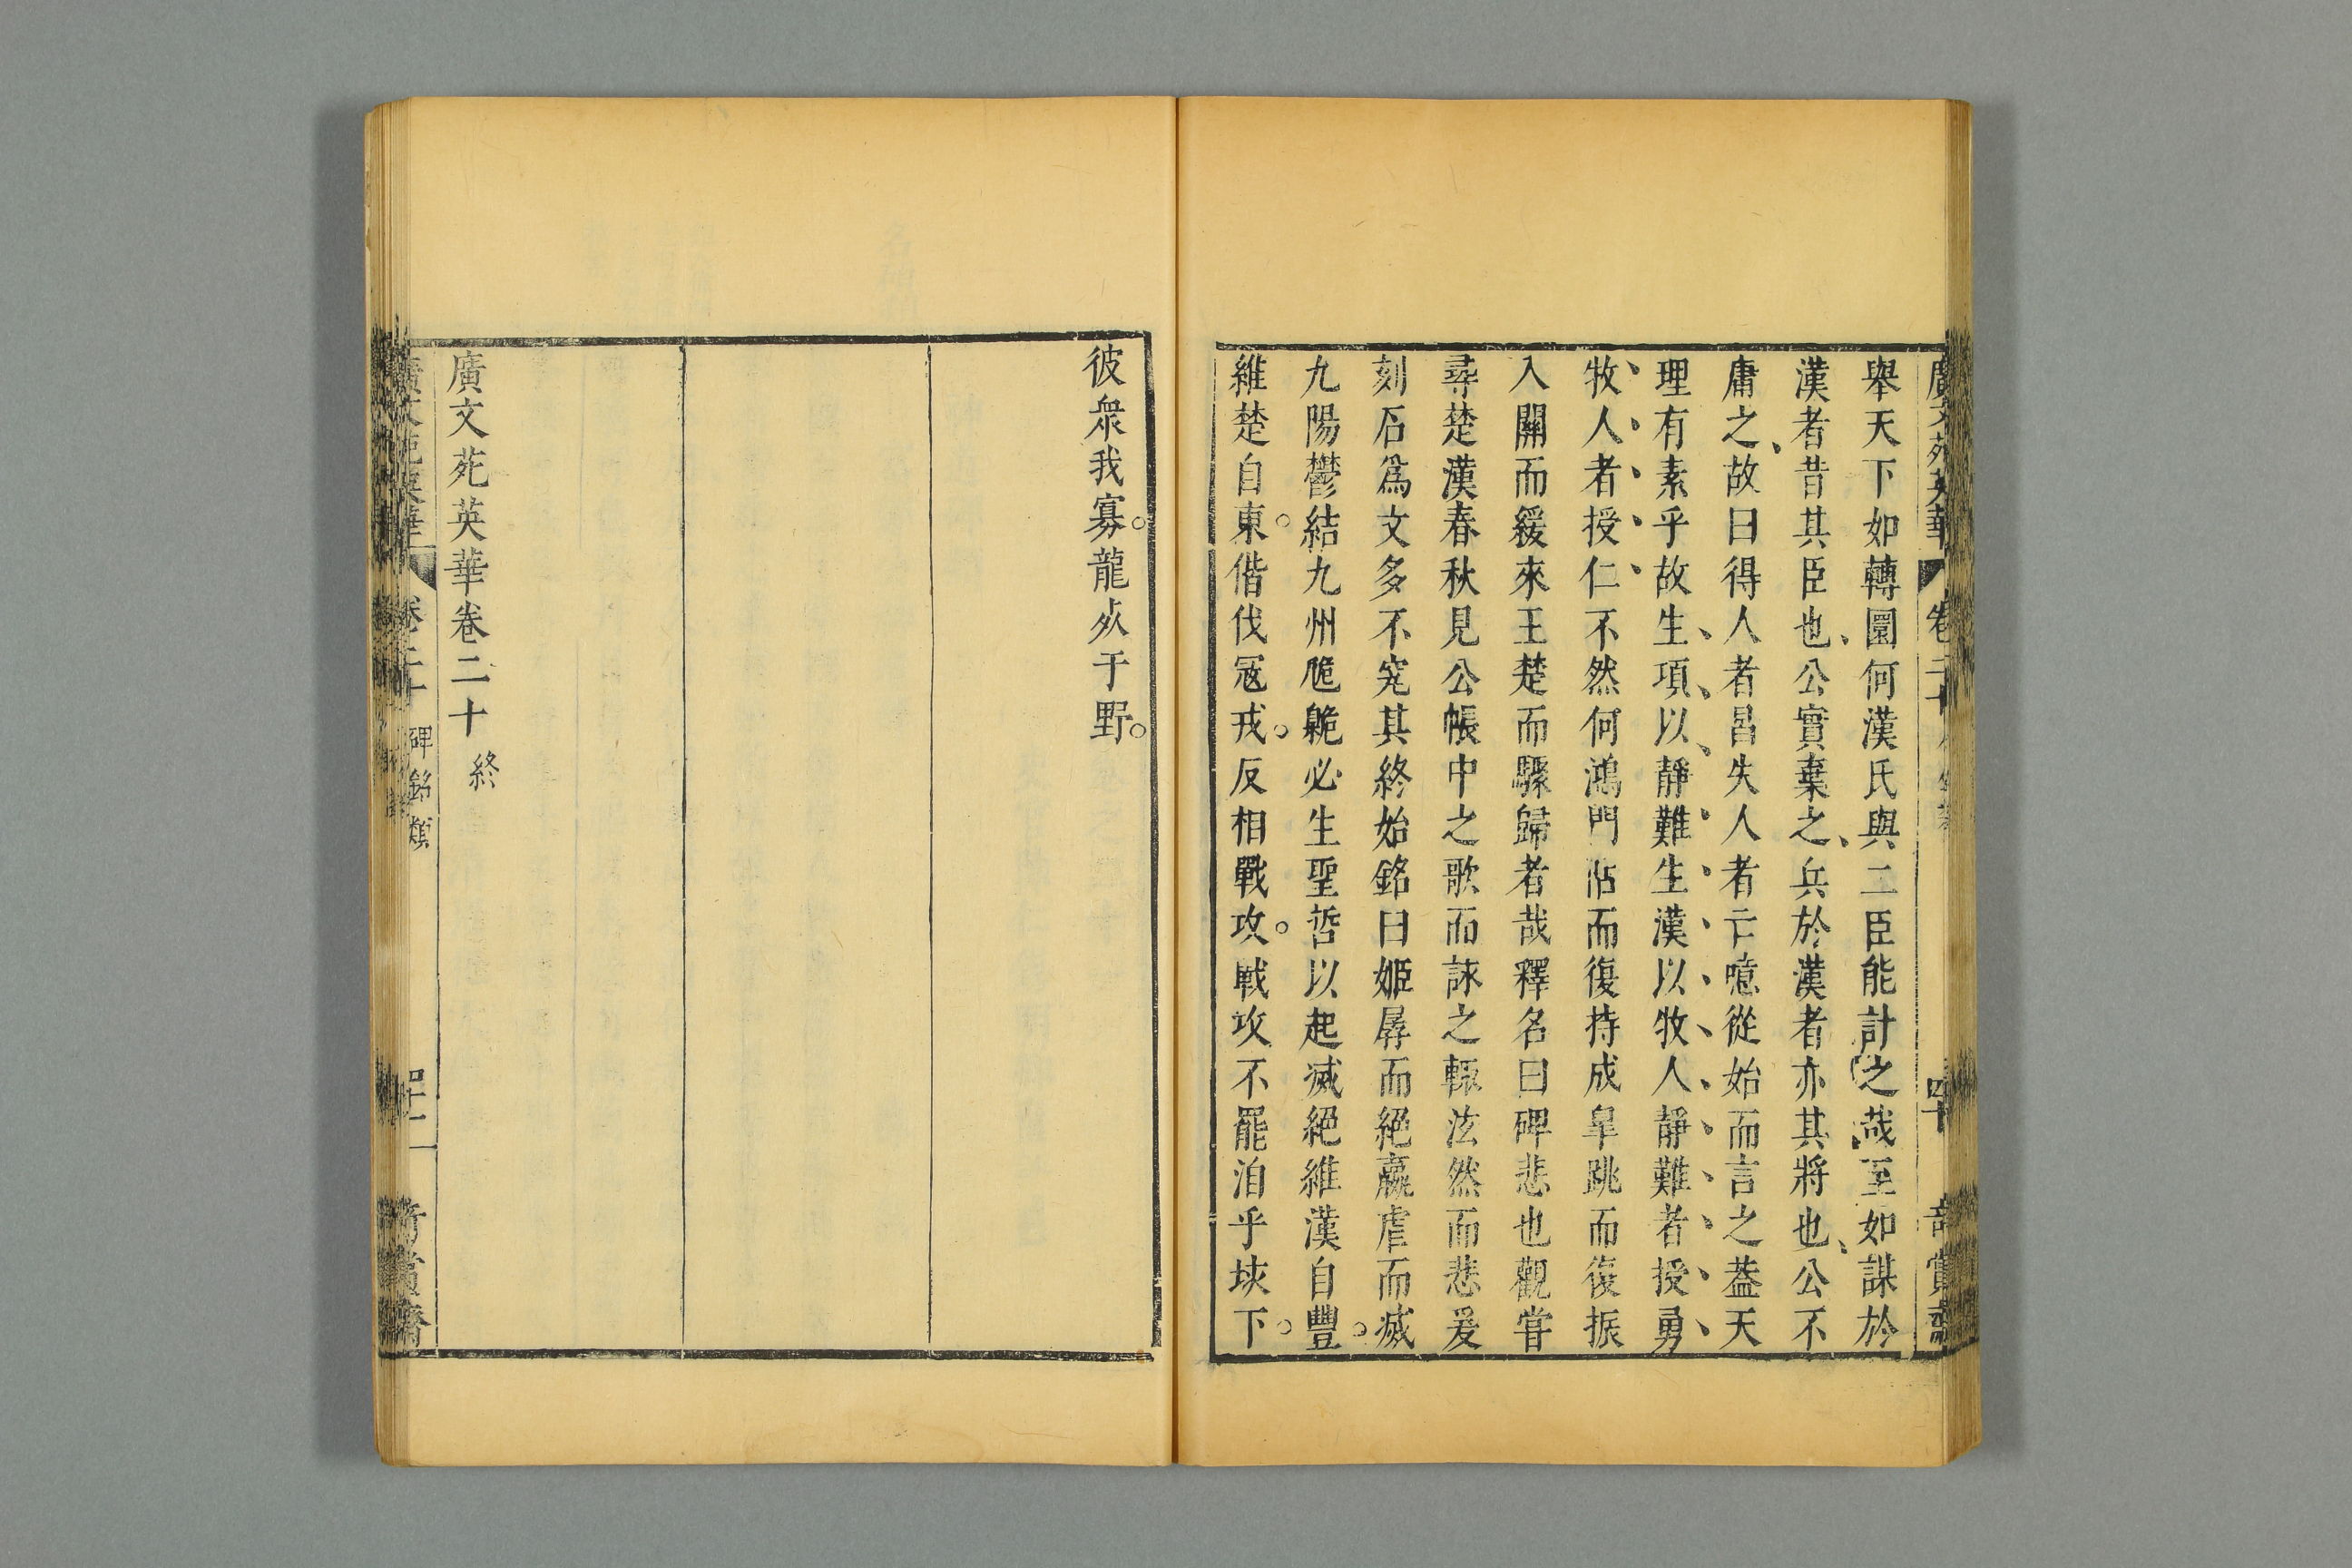 舉天下如轉圜何漢氏與二臣能計之哉至如謀於
漢者昔其臣也公實棄之兵於漢者亦其將也公不
庸之故曰得人者昌失人者亡噫從始而言之葢天
理有素乎故生項以靜難生漢以牧人靜難者授勇
牧人者授仁不然何鴻門阽而復持成皐跳而復振
入關而緩來王楚而驟歸者哉釋名曰碑悲也觀甞
尋楚漢春秋見公帳中之歌而詠之輒泫然而悲爰
刻石爲文多不究其終始銘曰姬孱而絕嬴虐而滅
九陽鬱結九州臲卼必生聖哲以起滅絕維漢自豐
維楚自東偕伐冦戎反相戰攻戰攻不罷洎乎垓下
彼衆我寡龍𣦸于野
廣文苑英華卷二十終
廣文苑英華 卷二十 碑銘類